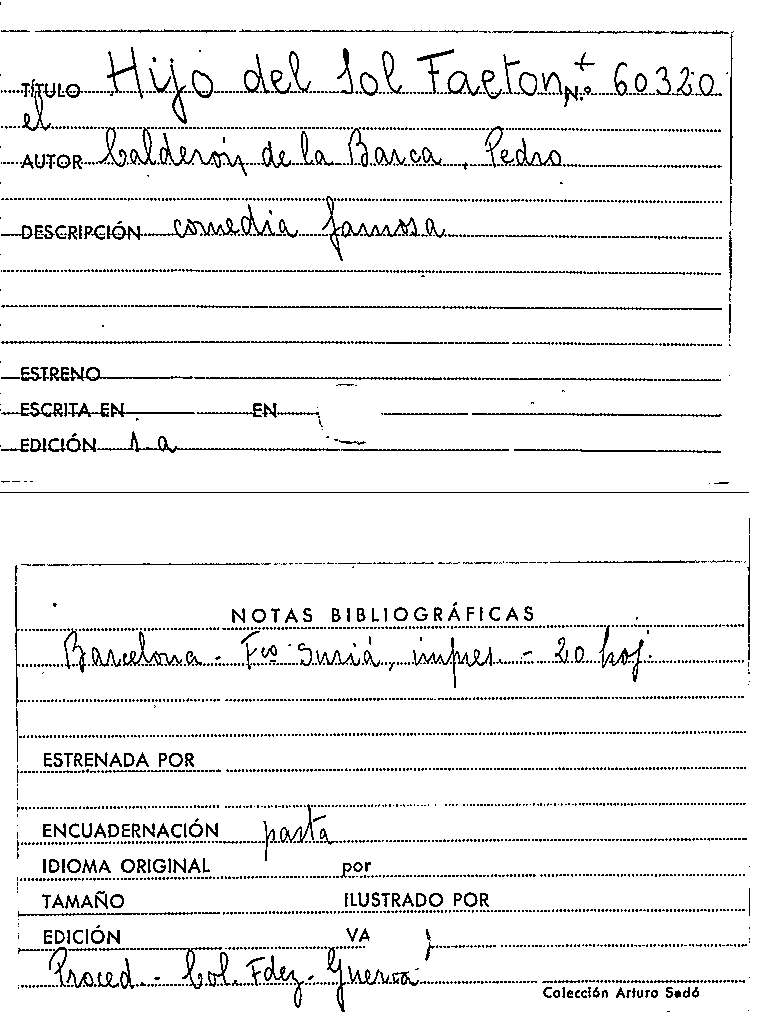 TÍTULO Hijo del Sol Faeton, N.º + 60320
el
AUTOR Calderón, de la Barca, Pedro
DESCRIPCIÓN comedia famosa
ESTRENO
ESCRITA EN EN
EDICIÓN s.a
NOTAS BIBLIOGRÁFICAS
Barcelona - Fco Suriá, impres. - 20 hoj.
ESTRENADA POR
ENCUADERNACIÓN pasta
IDIOMA ORIGINAL por
TAMAÑO ILUSTRADO POR
EDICIÓN VA
Proced. - Col. Fdez - Guerra
Colección Arturo Sedó